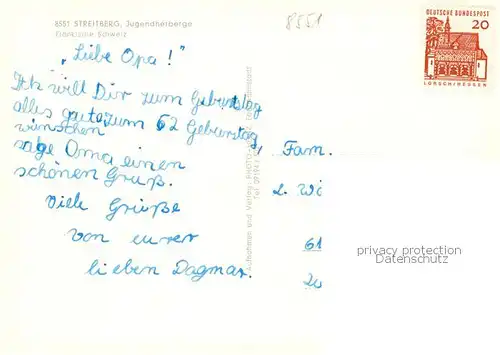 8551 STREITBERG, Jugendherberge
Fränkische Schweiz
8551
DEUTSCHE BUNDESPOST
20
LORSCH/HESSEN
„Liebe Opa!"
Ich will Dir zum Geburtstag
alles gute zum 62 Geburtstag,
wünschen
sage Oma einen
schönen Gruß.
Viele Grüße
von eurer
lieben Dagmar.
Aufnahmen und Verlag: PHOTO
Tel. 09194/
Fam.
L. Wi
61
privacy protection
Datenschutz